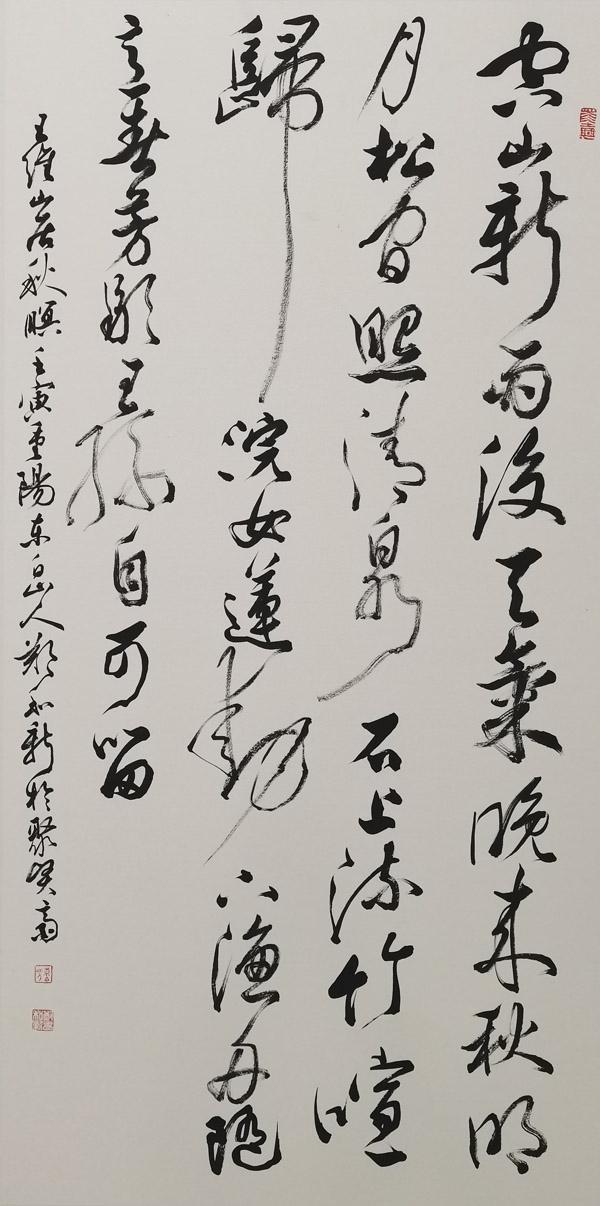 空山新雨後天氣晚来秋明
月松间照清泉石上流竹喧
歸浣女蓮動下漁舟随
意春芳歇王孫自可留
王维山居秋暝壬寅重陽东白山人郑新於聚贤斋